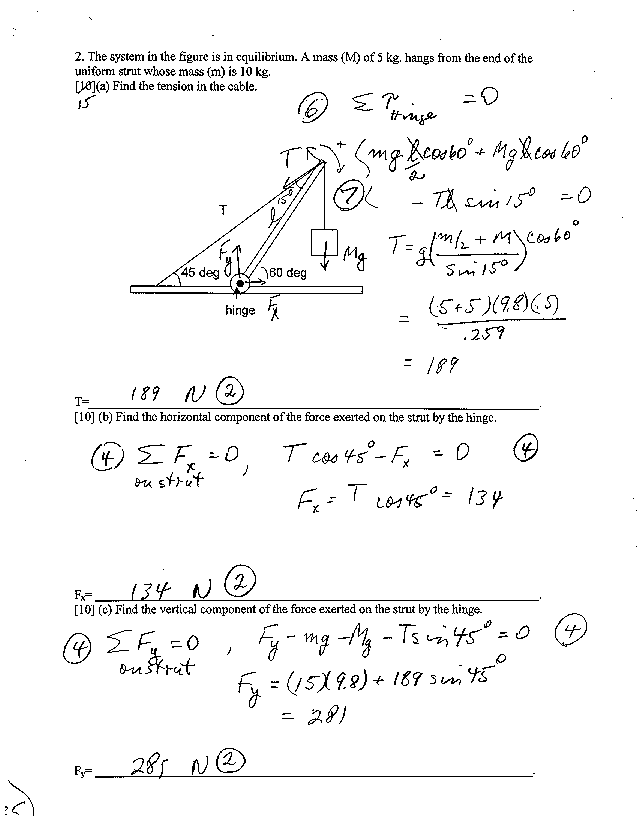 2. The system in the figure is in equilibrium. A mass (M) of 5 kg. hangs from the end of the
uniform strut whose mass (m) is 10 kg.
[10](a) Find the tension in the cable.
15
⑥ Σ τ Hinge = 0
T + (mg l/2 cos60° + Mg l cos 60°
⑦ - T l sin 15° = 0
T = g (m/2 + M) cos 60° / sin 15°
= (5+5)(9.8)(.5) / .259
= 189
T
15°
l
Fy
Mg
45 deg
60 deg
hinge Fx
T= 189 N ②
[10] (b) Find the horizontal component of the force exerted on the strut by the hinge.
④ Σ Fx = 0, T cos 45° - Fx = 0 ④
on strut
Fx = T cos 45° = 134
Fx= 134 N ②
[10] (c) Find the vertical component of the force exerted on the strut by the hinge.
④ Σ Fy = 0, Fy - mg - Mg - T sin 45° = 0 ④
on strut
Fy = (15)(9.8) + 189 sin 45°
= 281
Fy= 281 N ②